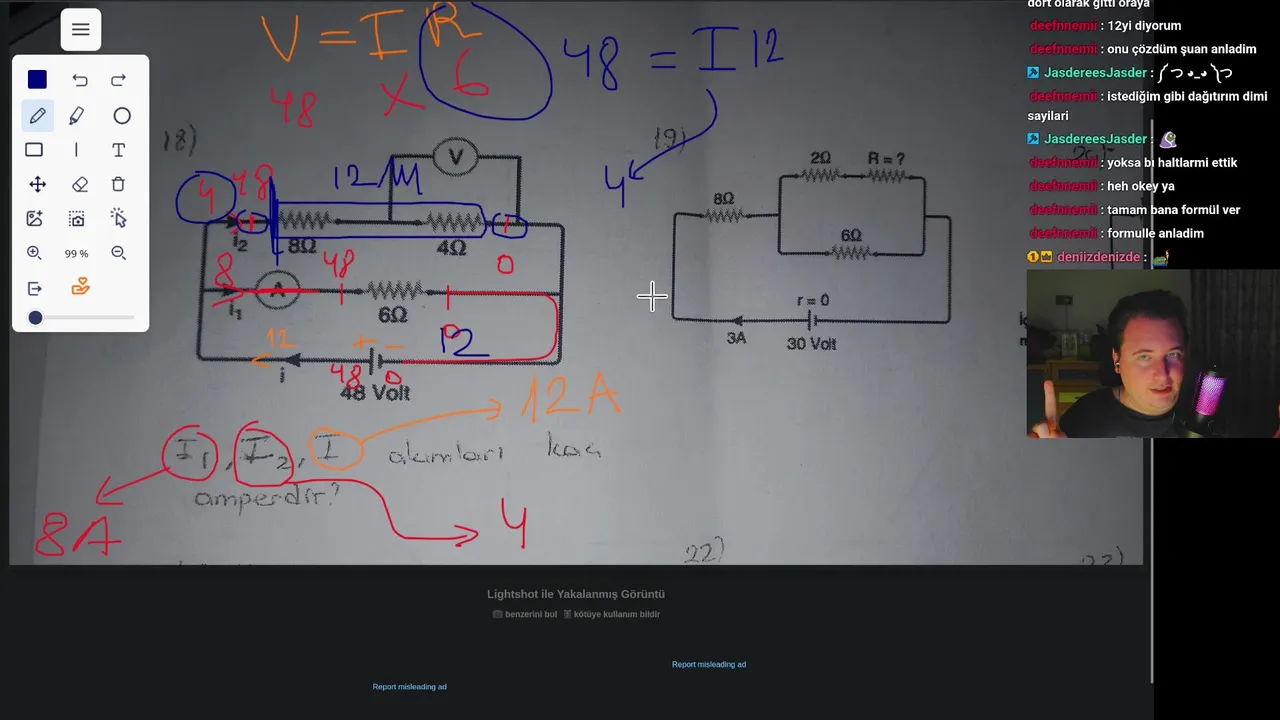 V = I R
48 X 6
48 = I 12
4
18)
V
4 48
12
i₂
8Ω
4Ω
0
8
48
A
i₁
6Ω
0
12
+ -
12
i
48
0
48 Volt
12A
I₁, I₂, I akımları kaç
amperdir?
8A
4
19)
2Ω
R = ?
8Ω
6Ω
r = 0
3A
30 Volt
22)
99 %
dört olarak gitti oraya
deefnnemii : 12yi diyorum
deefnnemii : onu çözdüm şuan anladim
JasdereesJasder :
deefnnemii : istediğim gibi dağıtırım dimi
sayilari
JasdereesJasder :
deefnnemii : yoksa bı haltlarmi ettik
deefnnemii : heh okey ya
deefnnemii : tamam bana formül ver
deefnnemii : formulle anladim
deniizdenizde :
Lightshot ile Yakalanmış Görüntü
benzerini bul kötüye kullanım bildir
Report misleading ad
Report misleading ad